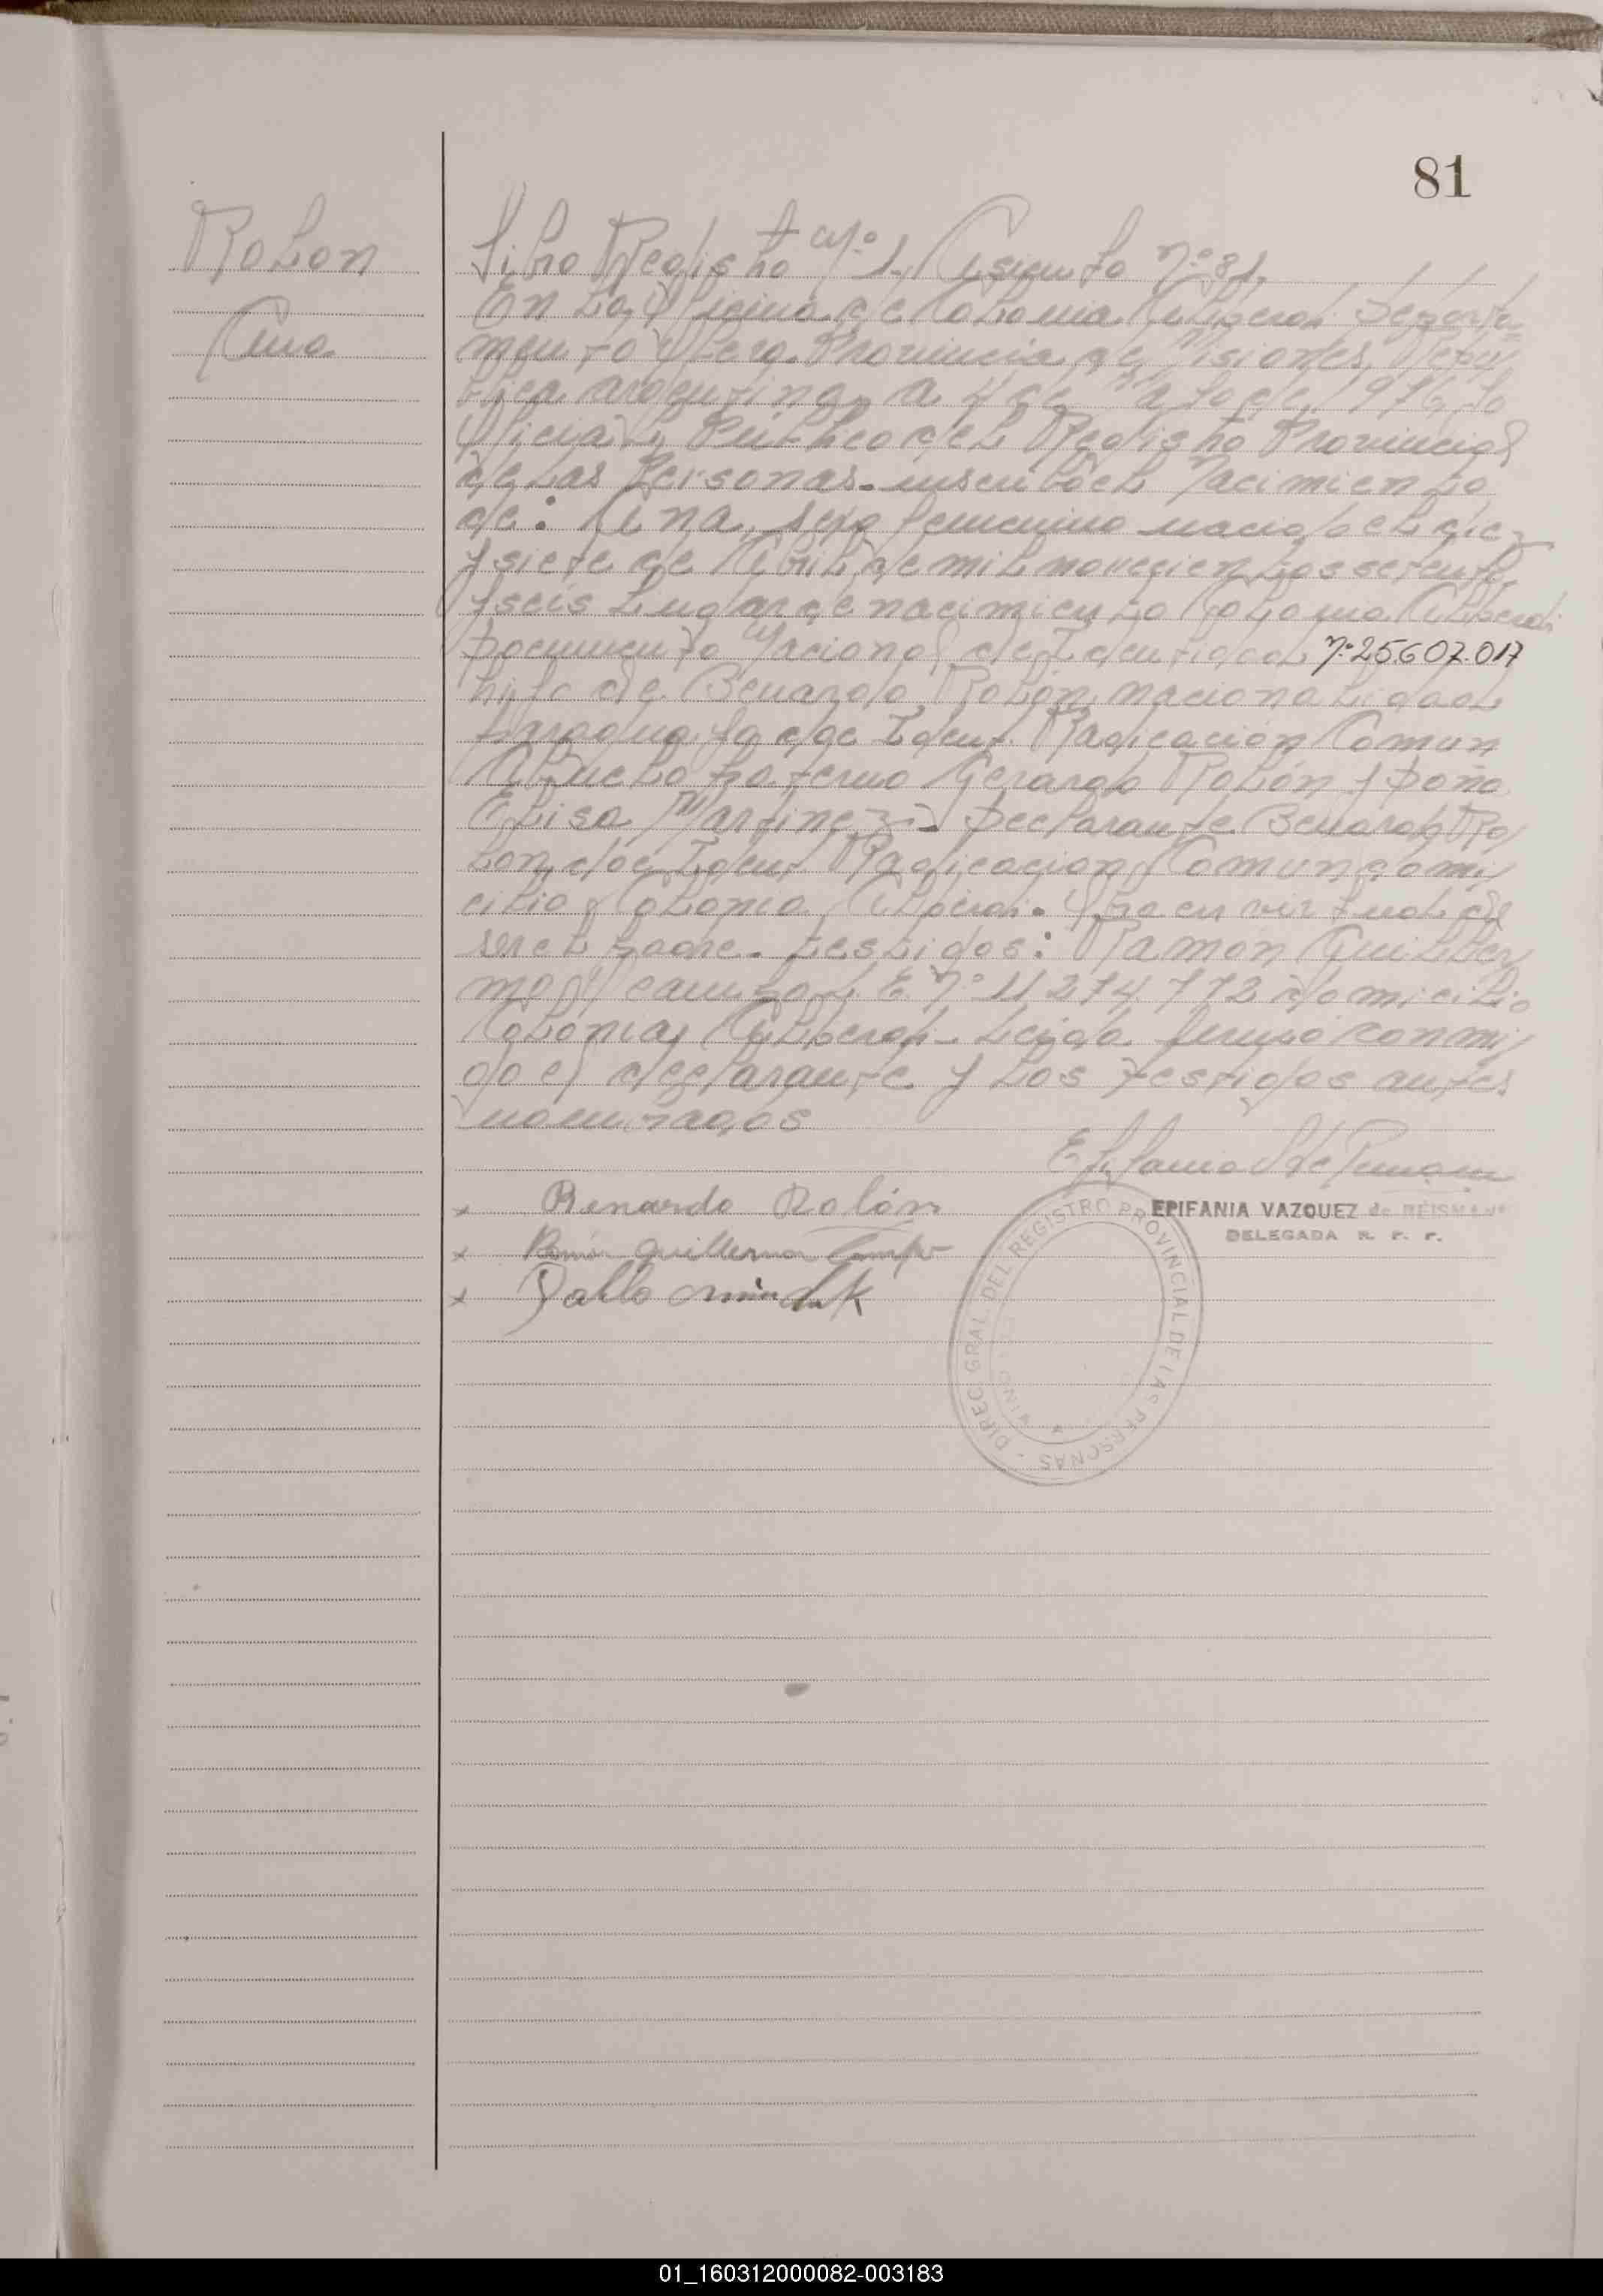 81
Rolon
Ana
Libro Registro Nº 1, Asiento nº 81,
En La Oficina de Colonia Alberdi Departa=
mento Provincia de Misiones, Repu
blica argentina, a de de 1976, Yo
Oficial Publico del Registro Provincial
de Las Personas. inscribo el Nacimiento
de: Ana, sexo femenino nacido el diez
y siete de Abril de mil novecientos setenta
y seis Lugar de nacimiento Colonia Alberdi
Documento Nacional de Identidad nº 25.607.017
hijo de Benardo Rolón, nacionalidad
Paraguaya doc Ident. Radicación Comun
Abuelo paterno Gerardo Rolón y Doña
Elisa Martinez.- Declarante Benardo Ro
lon, doc Ident. Radicacion Comun domi
cilio Colonia Alberdi. Obra en virtud de
ser el padre. testigos: Ramón Guiller
mo L.E. nº 11.274.772 domicilio
Colonia Alberdi- Leida firmó conmi
go el declarante y Los testigos antes
nombrados
Benardo Rolón
EPIFANIA VAZQUEZ de REISMANN
DELEGADA R. P. P.
Ramón Guillermo
Pablo
DIREC. GRAL. DEL REGISTRO PROVINCIAL DE LAS PERSONAS
01_160312000082-003183